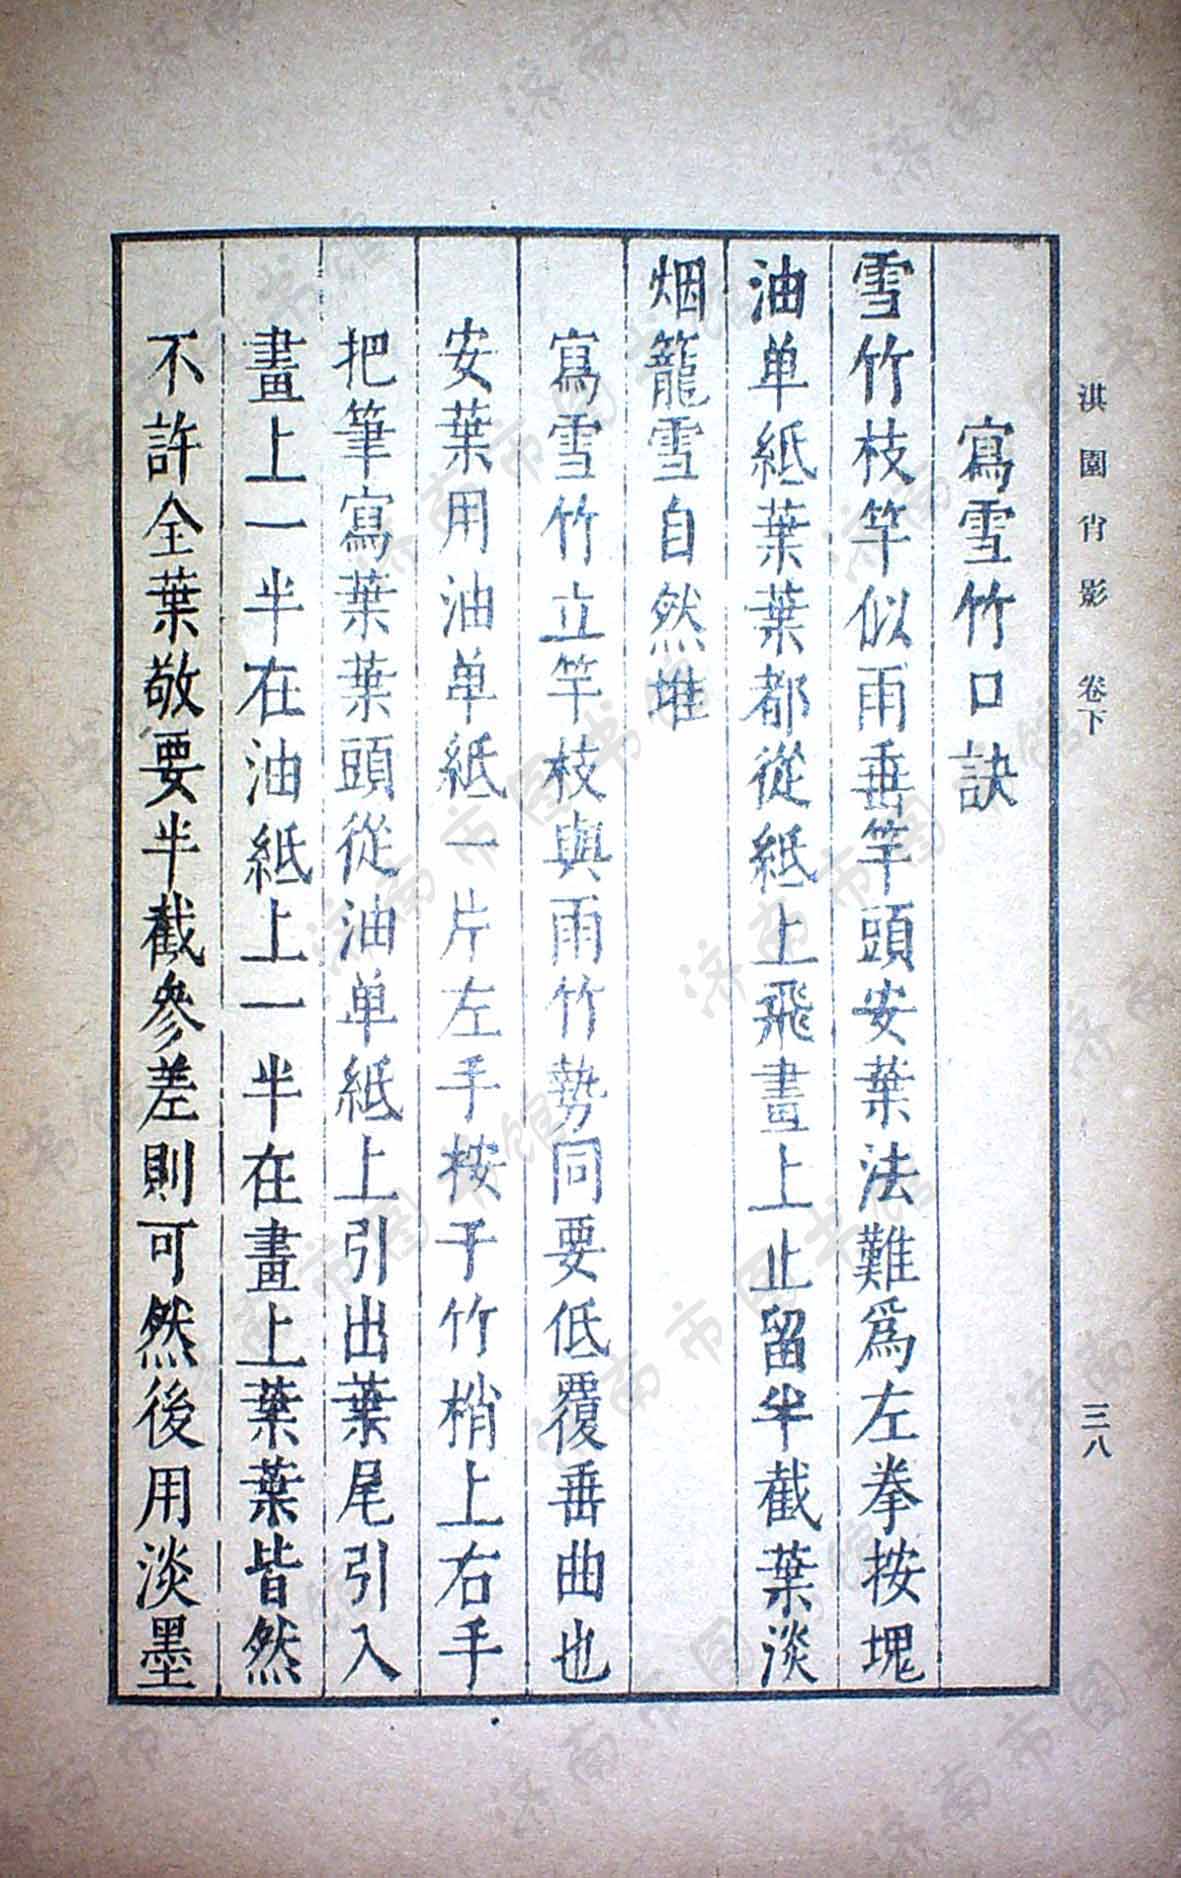 淇園肖影 卷下 三八
寫雪竹口訣
雪竹枝竿似雨垂竿頭安葉法難爲左拳按塊
油单紙葉葉都從紙上飛畫上止留半截葉淡
烟籠雪自然堆
寫雪竹立竿枝與雨竹勢同要低覆垂曲也
安葉用油单紙一片左手按于竹梢上右手
把筆寫葉葉頭從油单紙上引出葉尾引入
畫上一半在油紙上一半在畫上葉葉皆然
不許全葉敬要半截參差則可然後用淡墨
济南市图书馆